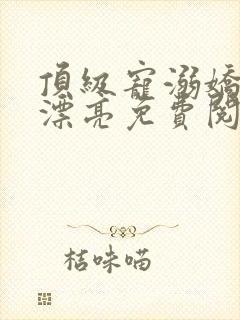 頂級寵溺嬌
漂亮免費閱
桔味喵